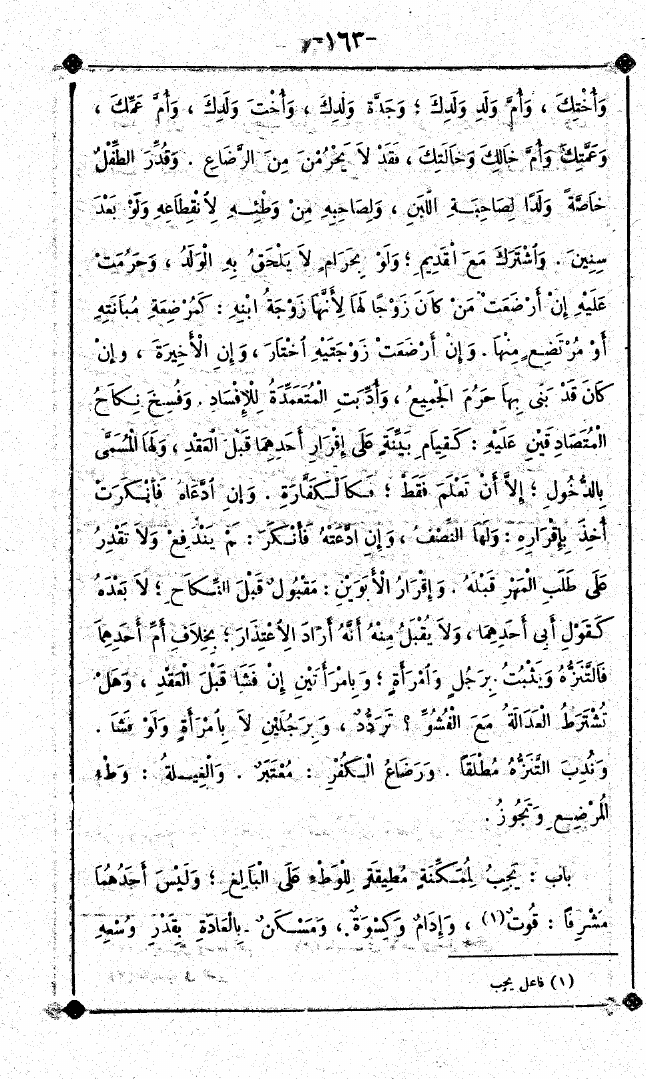 -١٦٣-
وَأُخْتِكَ ، وَأُمَّ وَلَدِ وَلَدِكَ ؛ وَجَدَّةَ وَلَدِكَ ، وَأُخْتَ وَلَدِكَ ، وَأُمَّ عَمِّكَ ،
وَعَمَّتِكَ وَأُمَّ خَالِكَ وَخَالَتِكَ ، فَقَدْ لاَ يَحْرُمْنَ مِنَ الرَّضَاعِ . وَقُدِّرَ الطِّفْلُ
خَاصَّةً وَلَدًا لِصَاحِبَةِ اللَّبَنِ ، وَلِصَاحِبِهِ مِنْ وَطْئِهِ لِانْقِطَاعِهِ وَلَوْ بَعْدَ
سِنِينَ . وَاشْتَرَكَ مَعَ الْقَدِيمِ ؛ وَلَوْ بِحَرَامٍ لاَ يَلْحَقُ بِهِ الْوَلَدُ ، وَحَرُمَتْ
عَلَيْهِ إِنْ أَرْضَعَتْ مَنْ كَانَ زَوْجًا لَهَا لِأَنَّهَا زَوْجَةُ ابْنِهِ : كَمُرْضِعَةِ مُبَانَتِهِ
أَوْ مُرْتَضِعٍ مِنْهَا . وَإِنْ أَرْضَعَتْ زَوْجَتَيْهِ اخْتَارَ ، وَإِنِ الْأَخِيرَةَ ، وإِنْ
كَانَ قَدْ بَنَى بِهَا حَرُمَ الْجَمِيعُ ، وَأُدِّبَتِ الْمُتَعَمِّدَةُ لِلْإِفْسَادِ . وَفُسِخَ نِكَاحُ
الْمُتَصَادِقَيْنِ عَلَيْهِ : كَقِيَامِ بَيِّنَةٍ عَلَى إِقْرَارِ أَحَدِهِمَا قَبْلَ الْعَقْدِ ، وَلَهَا الْمُسَمَّى
بِالدُّخُولِ ؛ إِلاَّ أَنْ تَعْلَمَ فَقَطْ ؛ فَكَالْكَفَّارَةِ . وَإِنِ ادَّعَاهُ فَأَنْكَرَتْ
أُخِذَ بِإِقْرَارِهِ : وَلَهَا النِّصْفُ ، وَإِنِ ادَّعَتْهُ فَأَنْكَرَ : لَمْ يَنْدَفِعْ وَلاَ تَقْدِرُ
عَلَى طَلَبِ الْمَهْرِ قَبْلَهُ . وَإِقْرَارُ الْأَبَوَيْنِ : مَقْبُولٌ قَبْلَ النِّكَاحِ ؛ لاَ بَعْدَهُ
كَقَوْلِ أَبِى أَحَدِهِمَا ، وَلاَ يُقْبَلُ مِنْهُ أَنَّهُ أَرَادَ الاِعْتِذَارَ ؛ بِخِلاَفِ أُمِّ أَحَدِهِمَا
فَالتَّنَزُّهُ وَيَثْبُتُ بِرَجُلٍ وَامْرَأَةٍ ؛ وَبِامْرَأَتَيْنِ إِنْ فَشَا قَبْلَ الْعَقْدِ ، وَهَلْ
تُشْتَرَطُ الْعَدَالَةُ مَعَ الْفُشُوِّ ؟ تَرَدُّدٌ ، وَبِرَجُلَيْنِ لاَ بِامْرَأَةٍ وَلَوْ فَشَا .
وَنُدِبَ التَّنَزُّهُ مُطْلَقاً . وَرَضَاعُ الْكُفْرِ : مُعْتَبَرٌ . وَالْغِيلَةُ : وَطْءُ
الْمُرْضِعِ وَتَجُوزُ .
باب : يَجِبُ لِمُمَكِّنَةٍ مُطِيقَةٍ لِلْوَطْءِ عَلَى الْبَالِغِ ؛ وَلَيْسَ أَحَدُهُمَا
مَشْرِفًا : قُوتٌ (١) ، وَإِدَامٌ وَكِسْوَةٌ ، وَمَسْكَنٌ بِالْعَادَةِ بِقَدْرِ وُسْعِهِ
(١) فاعل يجب